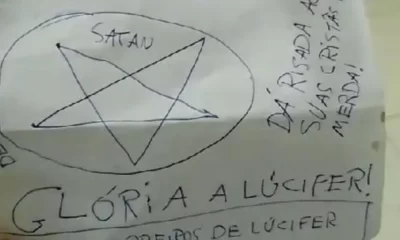 SATAN
DÁ RISADA A
SUAS CRISTÃS
MERDA!
GLÓRIA A LÚCIFER!
DE LÚCIFER